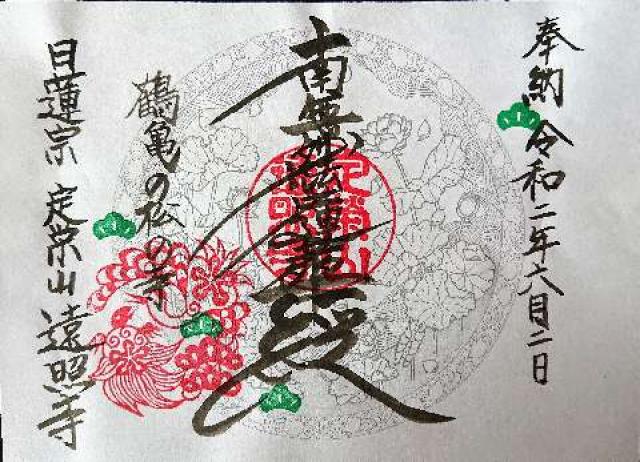 奉納 令和二年六月二日
南無妙法蓮華経
鶴亀の松の寺
日蓮宗 定栄山 遠照寺